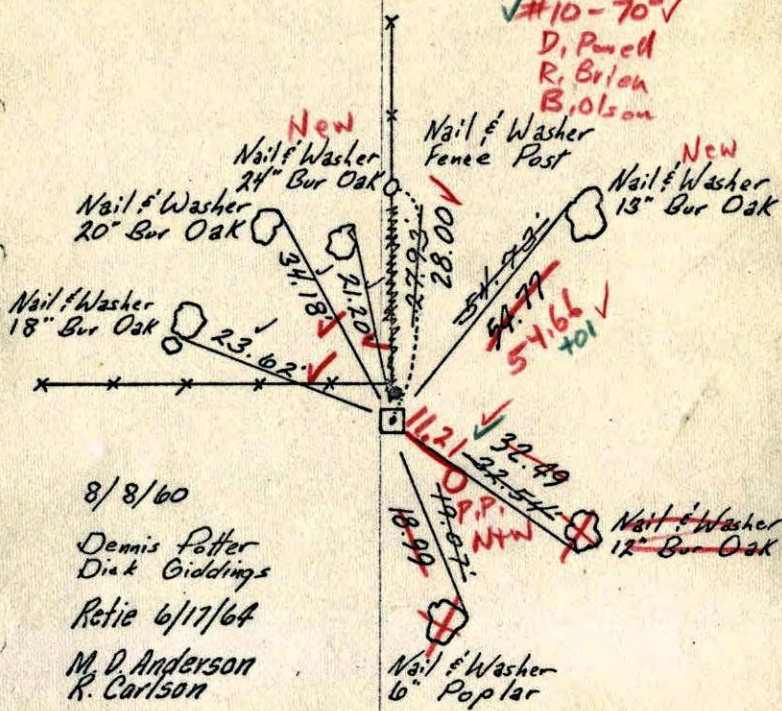 ✓#10-70✓
D. Powell
R. Brien
B. Olson
New
Nail & Washer
24" Bur Oak
Nail & Washer
Fence Post
New
Nail & Washer
13" Bur Oak
Nail & Washer
20" Bur Oak
Nail & Washer
18" Bur Oak
34.18'
21.20'
27.93'
28.00
54.73'
54.77
54.66
+01
23.62'
11.21
32.49
32.54'
P.P.
N+W
18.99
19.07'
Nail & Washer
12" Bur Oak
Nail & Washer
6" Poplar
8/8/60
Dennis Potter
Dick Giddings
Retie 6/17/64
M. D. Anderson
R. Carlson